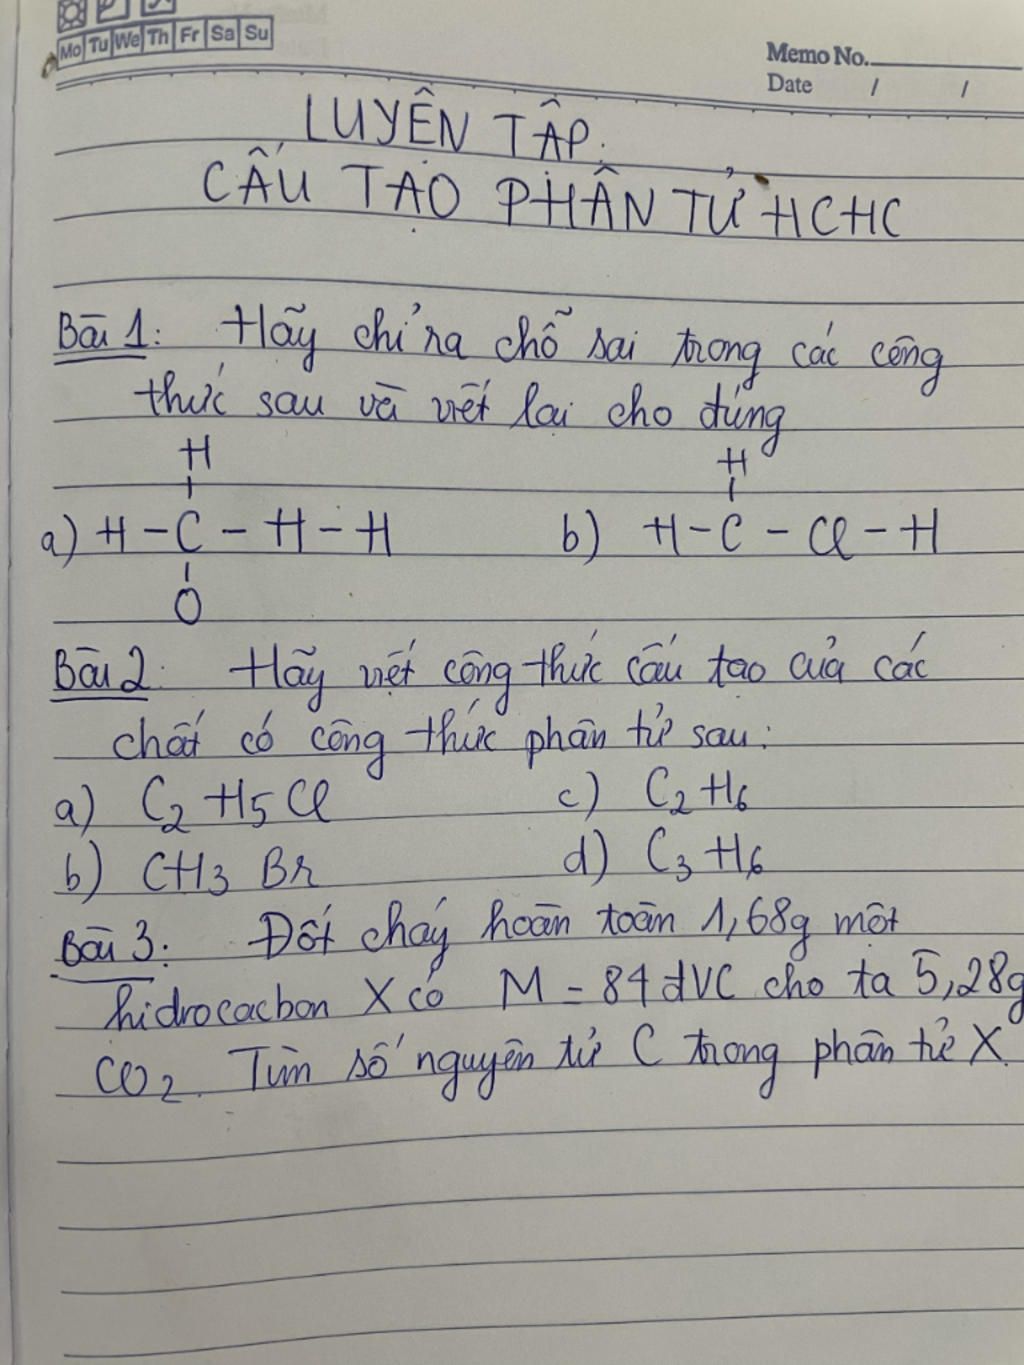 Mo Tu We Th Fr Sa Su
Memo No.
Date / /
LUYỆN TẬP:
CẤU TẠO PHÂN TỬ HCHC
Bài 1: Hãy chỉ ra chỗ sai trong các công
thức sau và viết lại cho đúng
H H
a) H - C - H - H b) H - C - Cl - H
O
Bài 2: Hãy viết công thức cấu tạo của các
chất có công thức phân tử sau:
a) C2H5Cl c) C2H6
b) CH3Br d) C3H6
Bài 3: Đốt cháy hoàn toàn 1,68g một
hidrocacbon X có M = 84 đVC cho ta 5,28g
CO2. Tìm số nguyên tử C trong phân tử X.